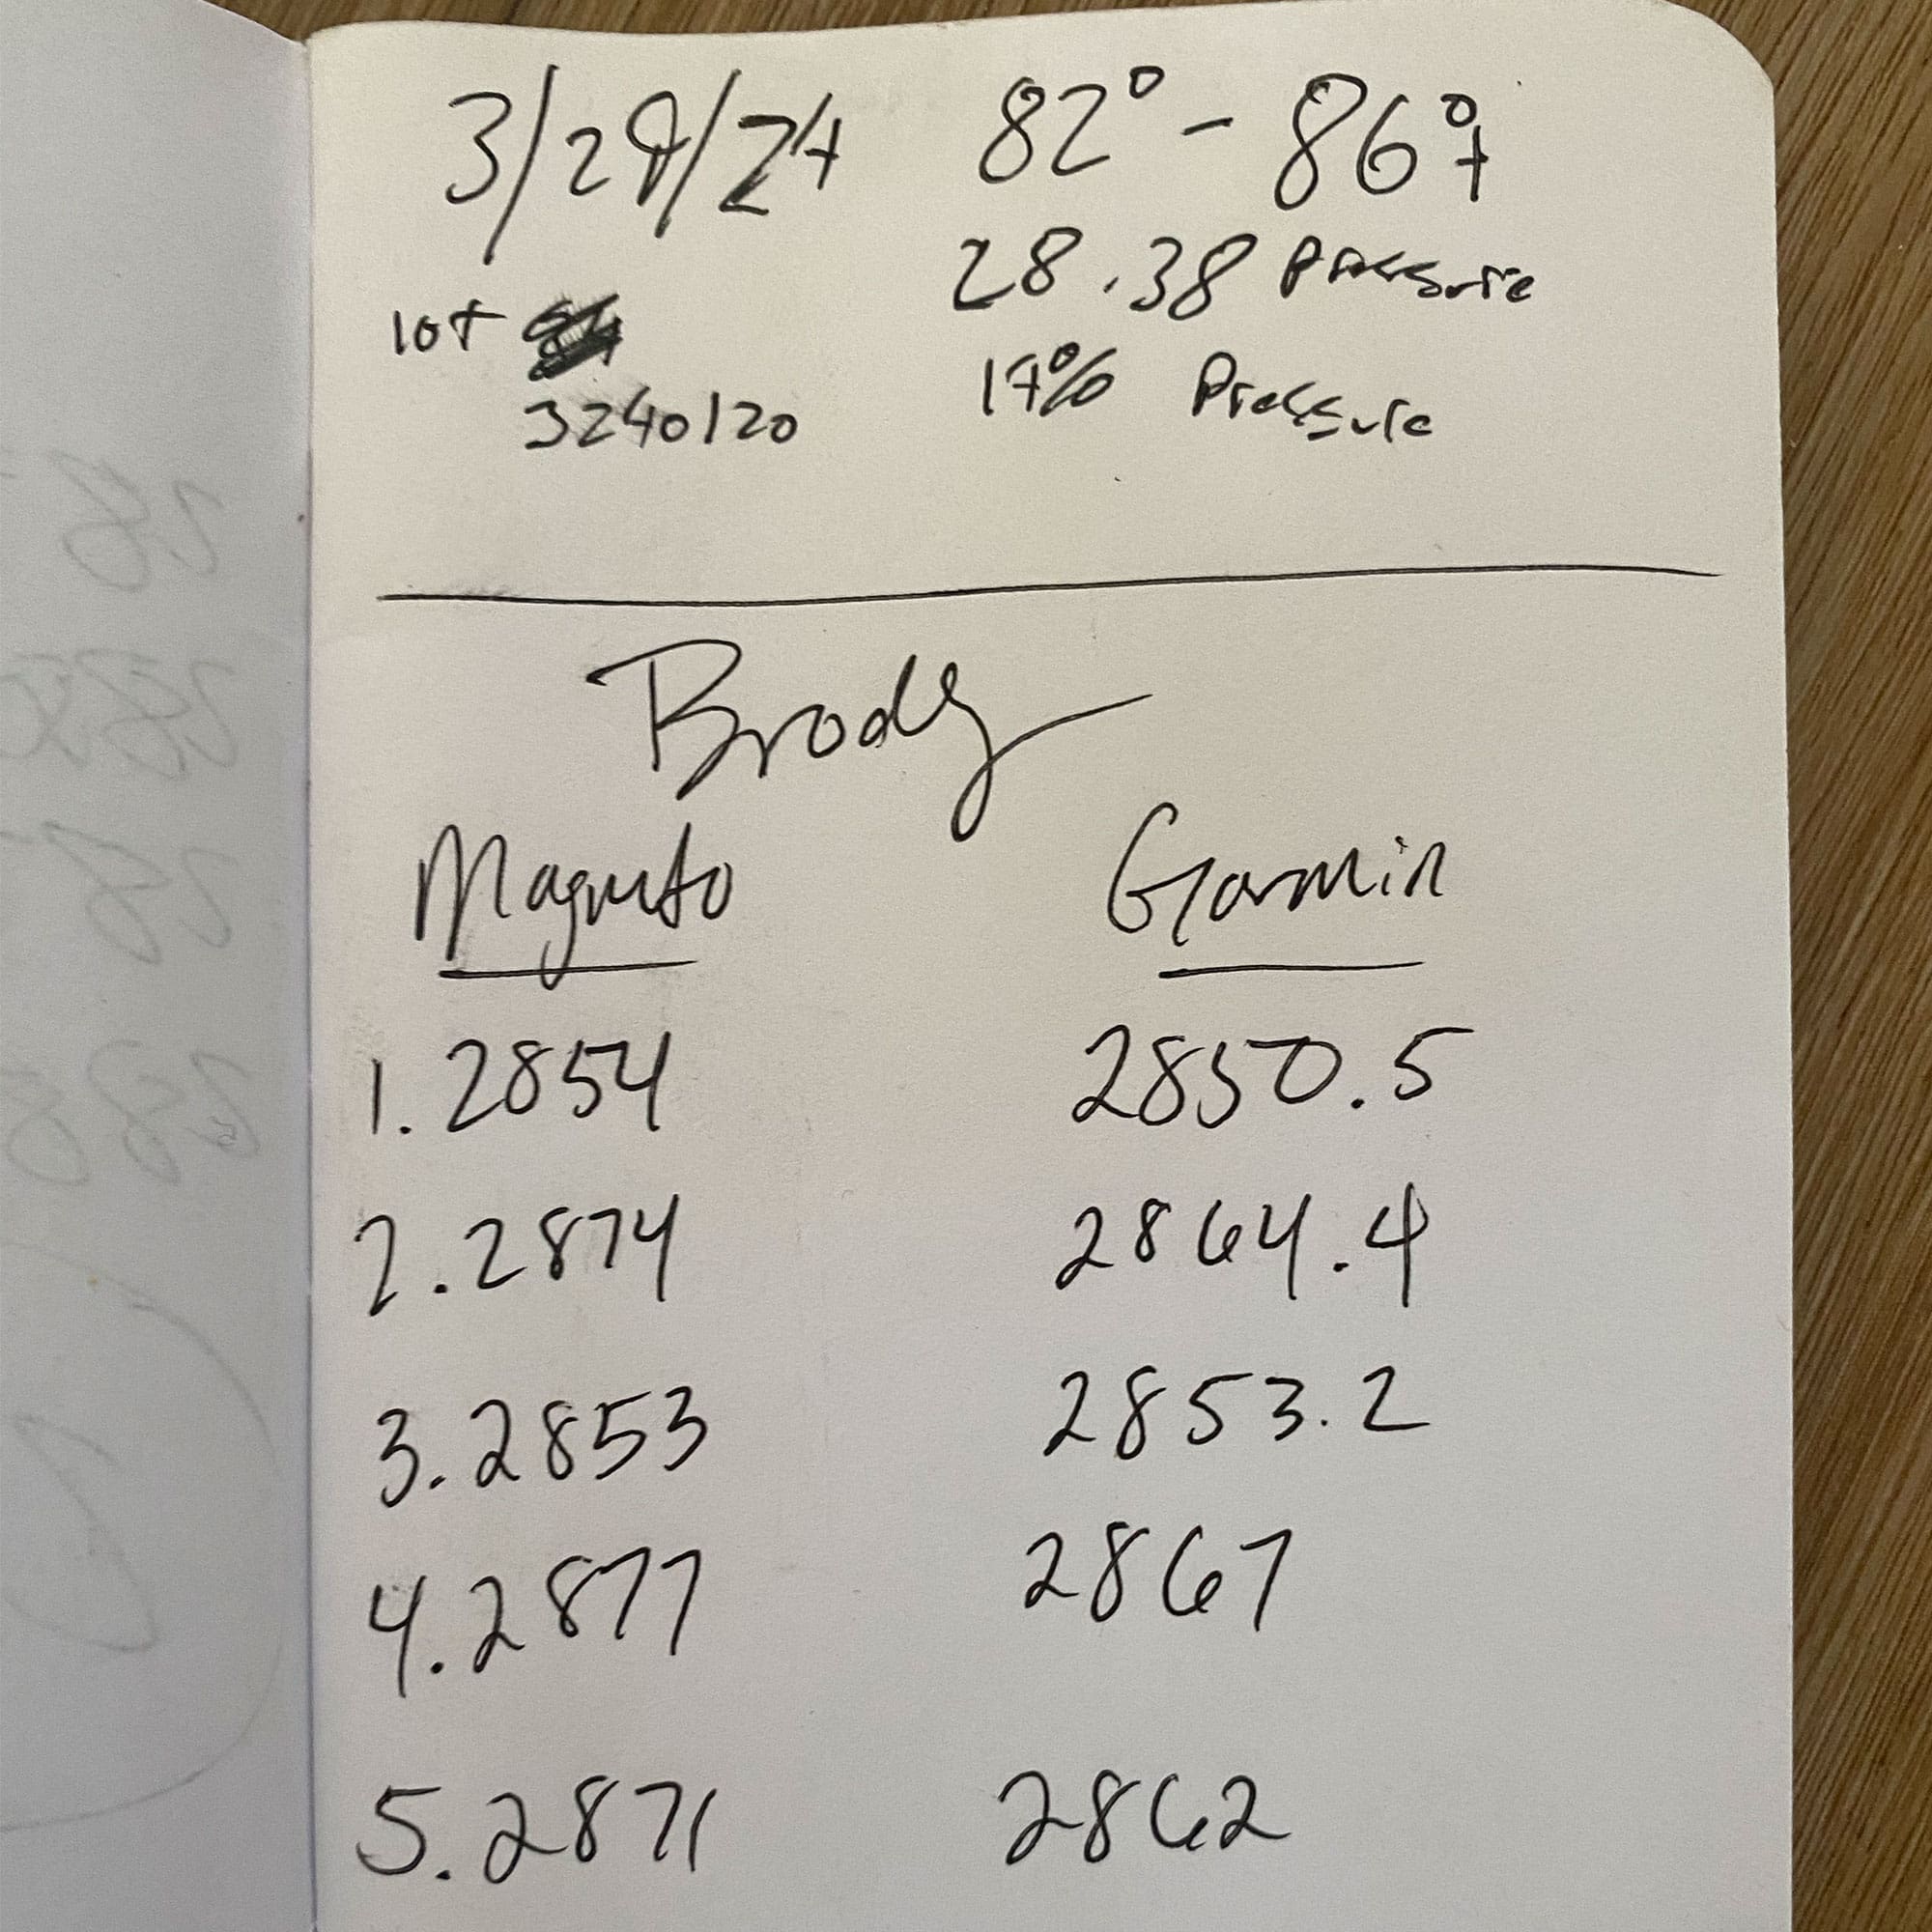 3/29/24 82° - 86°f
28.38 Pressure
lot
17% Pressure
3240120
Brody
Magneto Garmin
1. 2854 2850.5
2. 2874 2864.4
3. 2853 2853.2
4. 2877 2867
5. 2871 2862